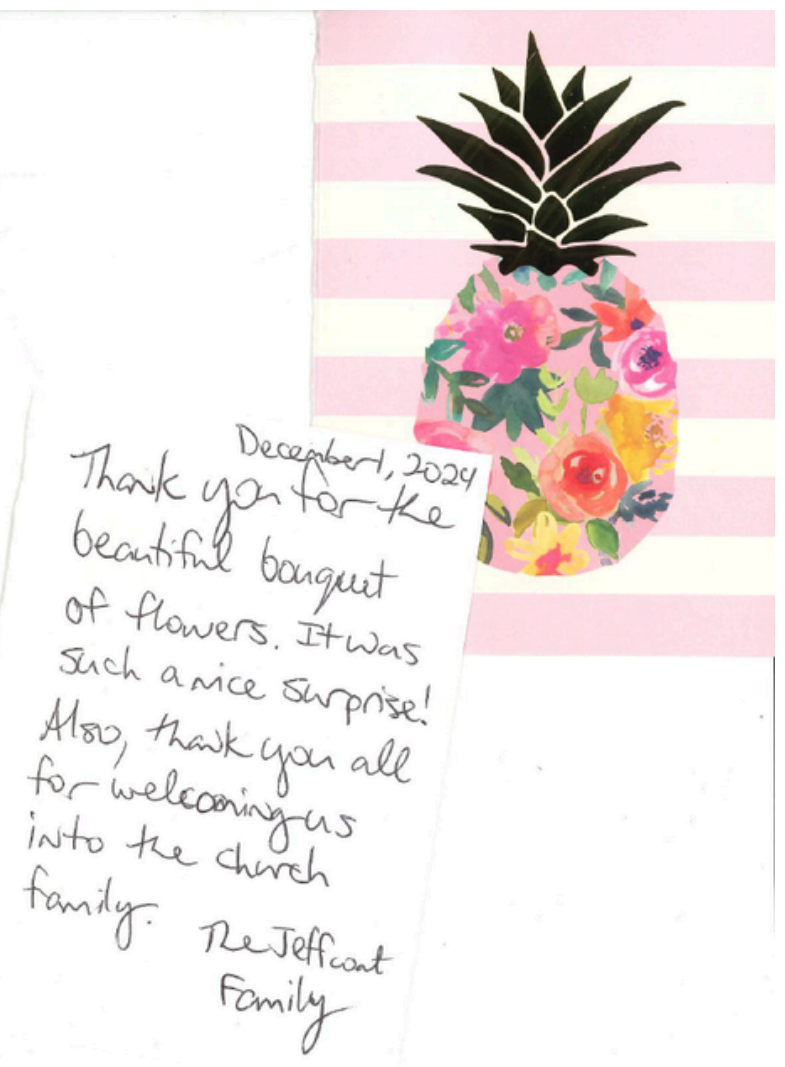 December 1, 2024
Thank you for the
beautiful bouquet
of flowers. It was
such a nice surprise!
Also, thank you all
for welcoming us
into the church
family.
The Jeffcoat
Family